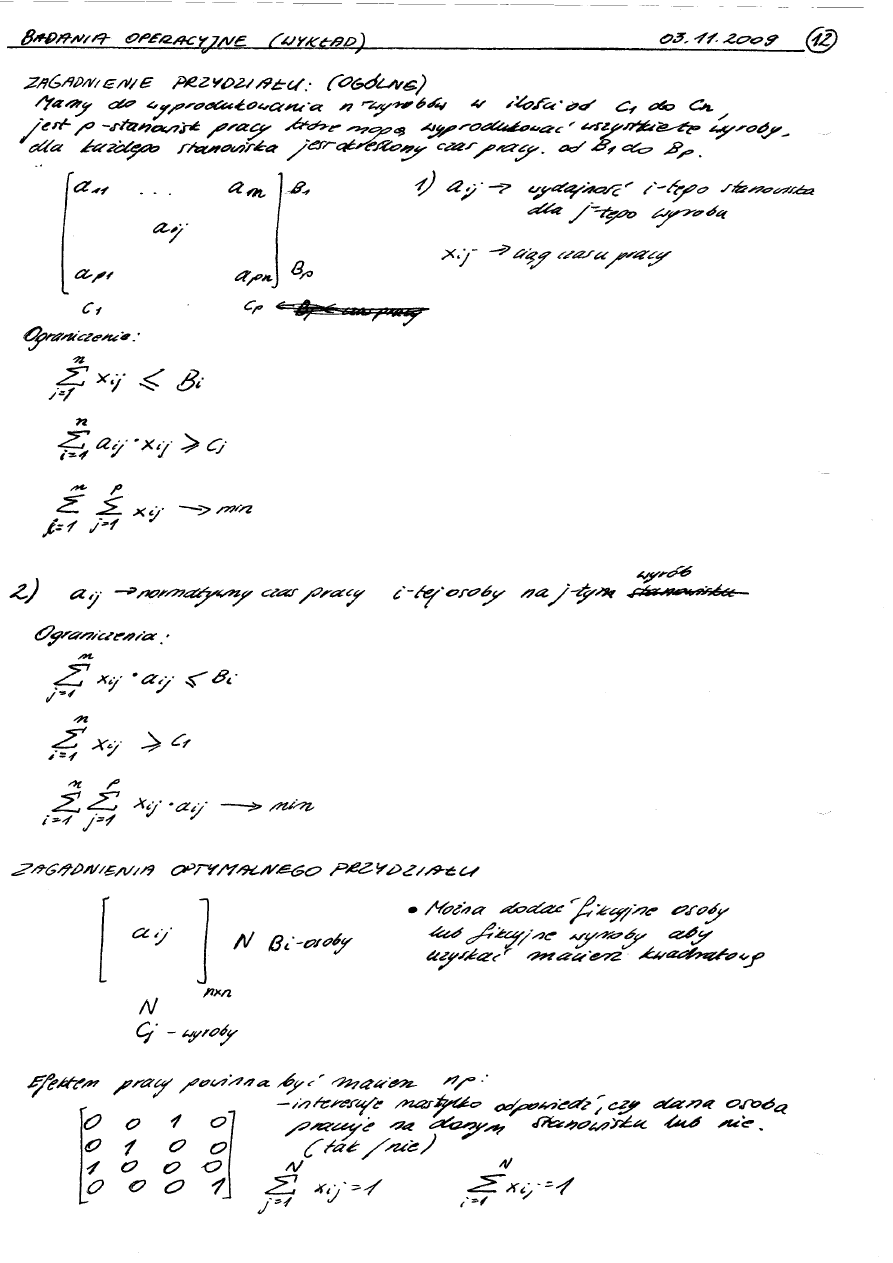 BADANIA OPERACYJNE (WYKŁAD) 03.11.2009 12
ZAGADNIENIE PRZYDZIAŁU: (OGÓLNE)
Mamy do wyprodukowania n-wyrobów w ilości od C1 do Cn,
jest p-stanowisk pracy które mogą wyprodukować wszystkie te wyroby,
dla każdego stanowiska jest określony czas pracy. od B1 do Bp.
[a11 ... a1n] B1
aij
[ap1 apn] Bp
C1 Cp
1) aij → wydajność i-tego stanowiska
dla j-tego wyrobu
xij → ciąg czasu pracy
Ograniczenia:
n∑j=1 xij ≤ Bi
n∑i=1 aij · xij ≥ Cj
n∑i=1 p∑j=1 xij → min
2) aij → normatywny czas pracy i-tej osoby na j-tym wyrób
Ograniczenia:
n∑j=1 xij · aij ≤ Bi
n∑i=1 xij ≥ C1
n∑i=1 p∑j=1 xij · aij → min
ZAGADNIENIA OPTYMALNEGO PRZYDZIAŁU
[aij] nxn N Bi-osoby
N
Cj - wyroby
• Można dodać fikcyjne osoby
lub fikcyjne wyroby aby
uzyskać macierz kwadratową
Efektem pracy powinna być macierz np:
- interesuje nas tylko odpowiedź, czy dana osoba
pracuje na danym stanowisku lub nie.
(tak / nie)
0 0 1 0
0 1 0 0
1 0 0 0
0 0 0 1
N∑j=1 xij = 1 N∑i=1 xij = 1